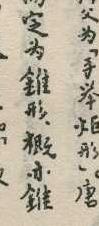 父为「手举炬形」唐
定为錐形，概亦錐